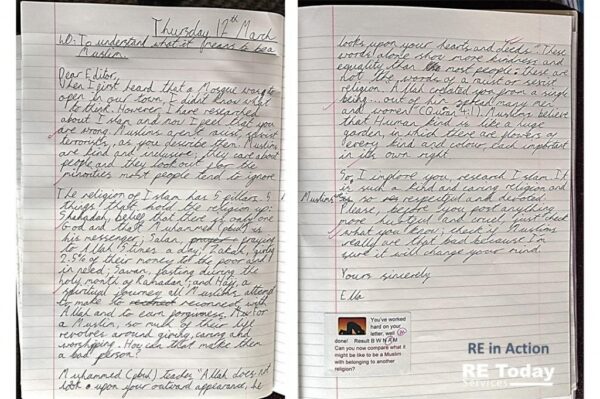 Thursday 12th March
LO: To understand what it means to be a
Muslim.
Dear Editor,
When I first heard that a Mosque was to
open in our town, I didn't know what
to think. However, I have researched
about Islam and now I feel that you
are wrong. Muslims aren't racist, sexist
terrorists, as you describe them. Muslims
are kind and inclusive; they care about
people and they look out for the
minorities most people tend to ignore.
The religion of Islam has 5 pillars. 5
things that hold the religion up:
Shahadah, belief that there is only one
God and that Muhammed (pbuh) is
his messenger; Salah, praying
to Allah 5 times a day; Zakah, giving
2.5% of their money to the poor and
in need; Sawm, fasting during the
holy month of Ramadan; and Hajj, a
spiritual journey all Muslims attempt
to make to reconnect with
Allah and to earn forgiveness. As for
a Muslim, so much of their life
revolves around giving, caring and
worshipping. How can that make them
a bad person?
Muhammed (pbuh) teaches 'Allah does not
look upon your outward appearance, he
looks upon your hearts and deeds.' These
words alone show more kindness and
equality than most people: these are
not the words of a racist or sexist
religion. Allah created you from a single
being... out of him spread many men
and women (Quran 4:1). Muslims believe
that Human kind is like a huge
garden, in which there are flowers of
every kind and colour, each important
in its own right.
So, I implore you, research Islam. It
is such a kind and caring religion and
Muslims so respectful and devoted.
Please, before you post anything
more hurtful and cruel, just check
what you know; check if Muslims
really are that bad because I'm
sure it will change your mind.
Yours sincerely
Ella
You've worked
hard on your
letter, well
done! Result B W N A M
Can you now compare what it
might be like to be a Muslim
with belonging to another
religion?
RE in Action
RE Today
Services